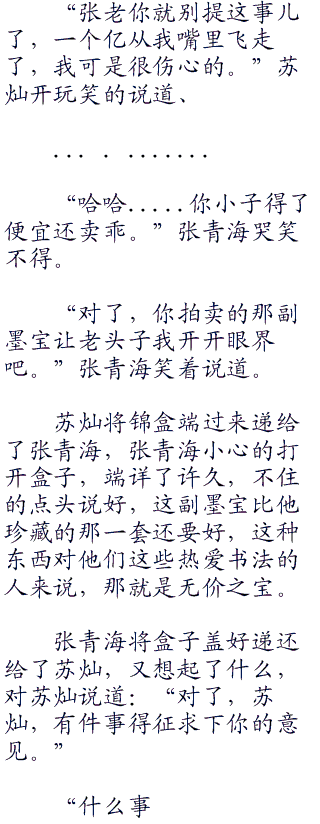 “张老你就别提这事儿
了，一个亿从我嘴里飞走
了，我可是很伤心的。”苏
灿开玩笑的说道、
... . .......
“哈哈.....你小子得了
便宜还卖乖。”张青海哭笑
不得。
“对了，你拍卖的那副
墨宝让老头子我开开眼界
吧。”张青海笑着说道。
苏灿将锦盒端过来递给
了张青海，张青海小心的打
开盒子，端详了许久，不住
的点头说好，这副墨宝比他
珍藏的那一套还要好，这种
东西对他们这些热爱书法的
人来说，那就是无价之宝。
张青海将盒子盖好递还
给了苏灿，又想起了什么，
对苏灿说道：“对了，苏
灿，有件事得征求下你的意
见。”
“什么事